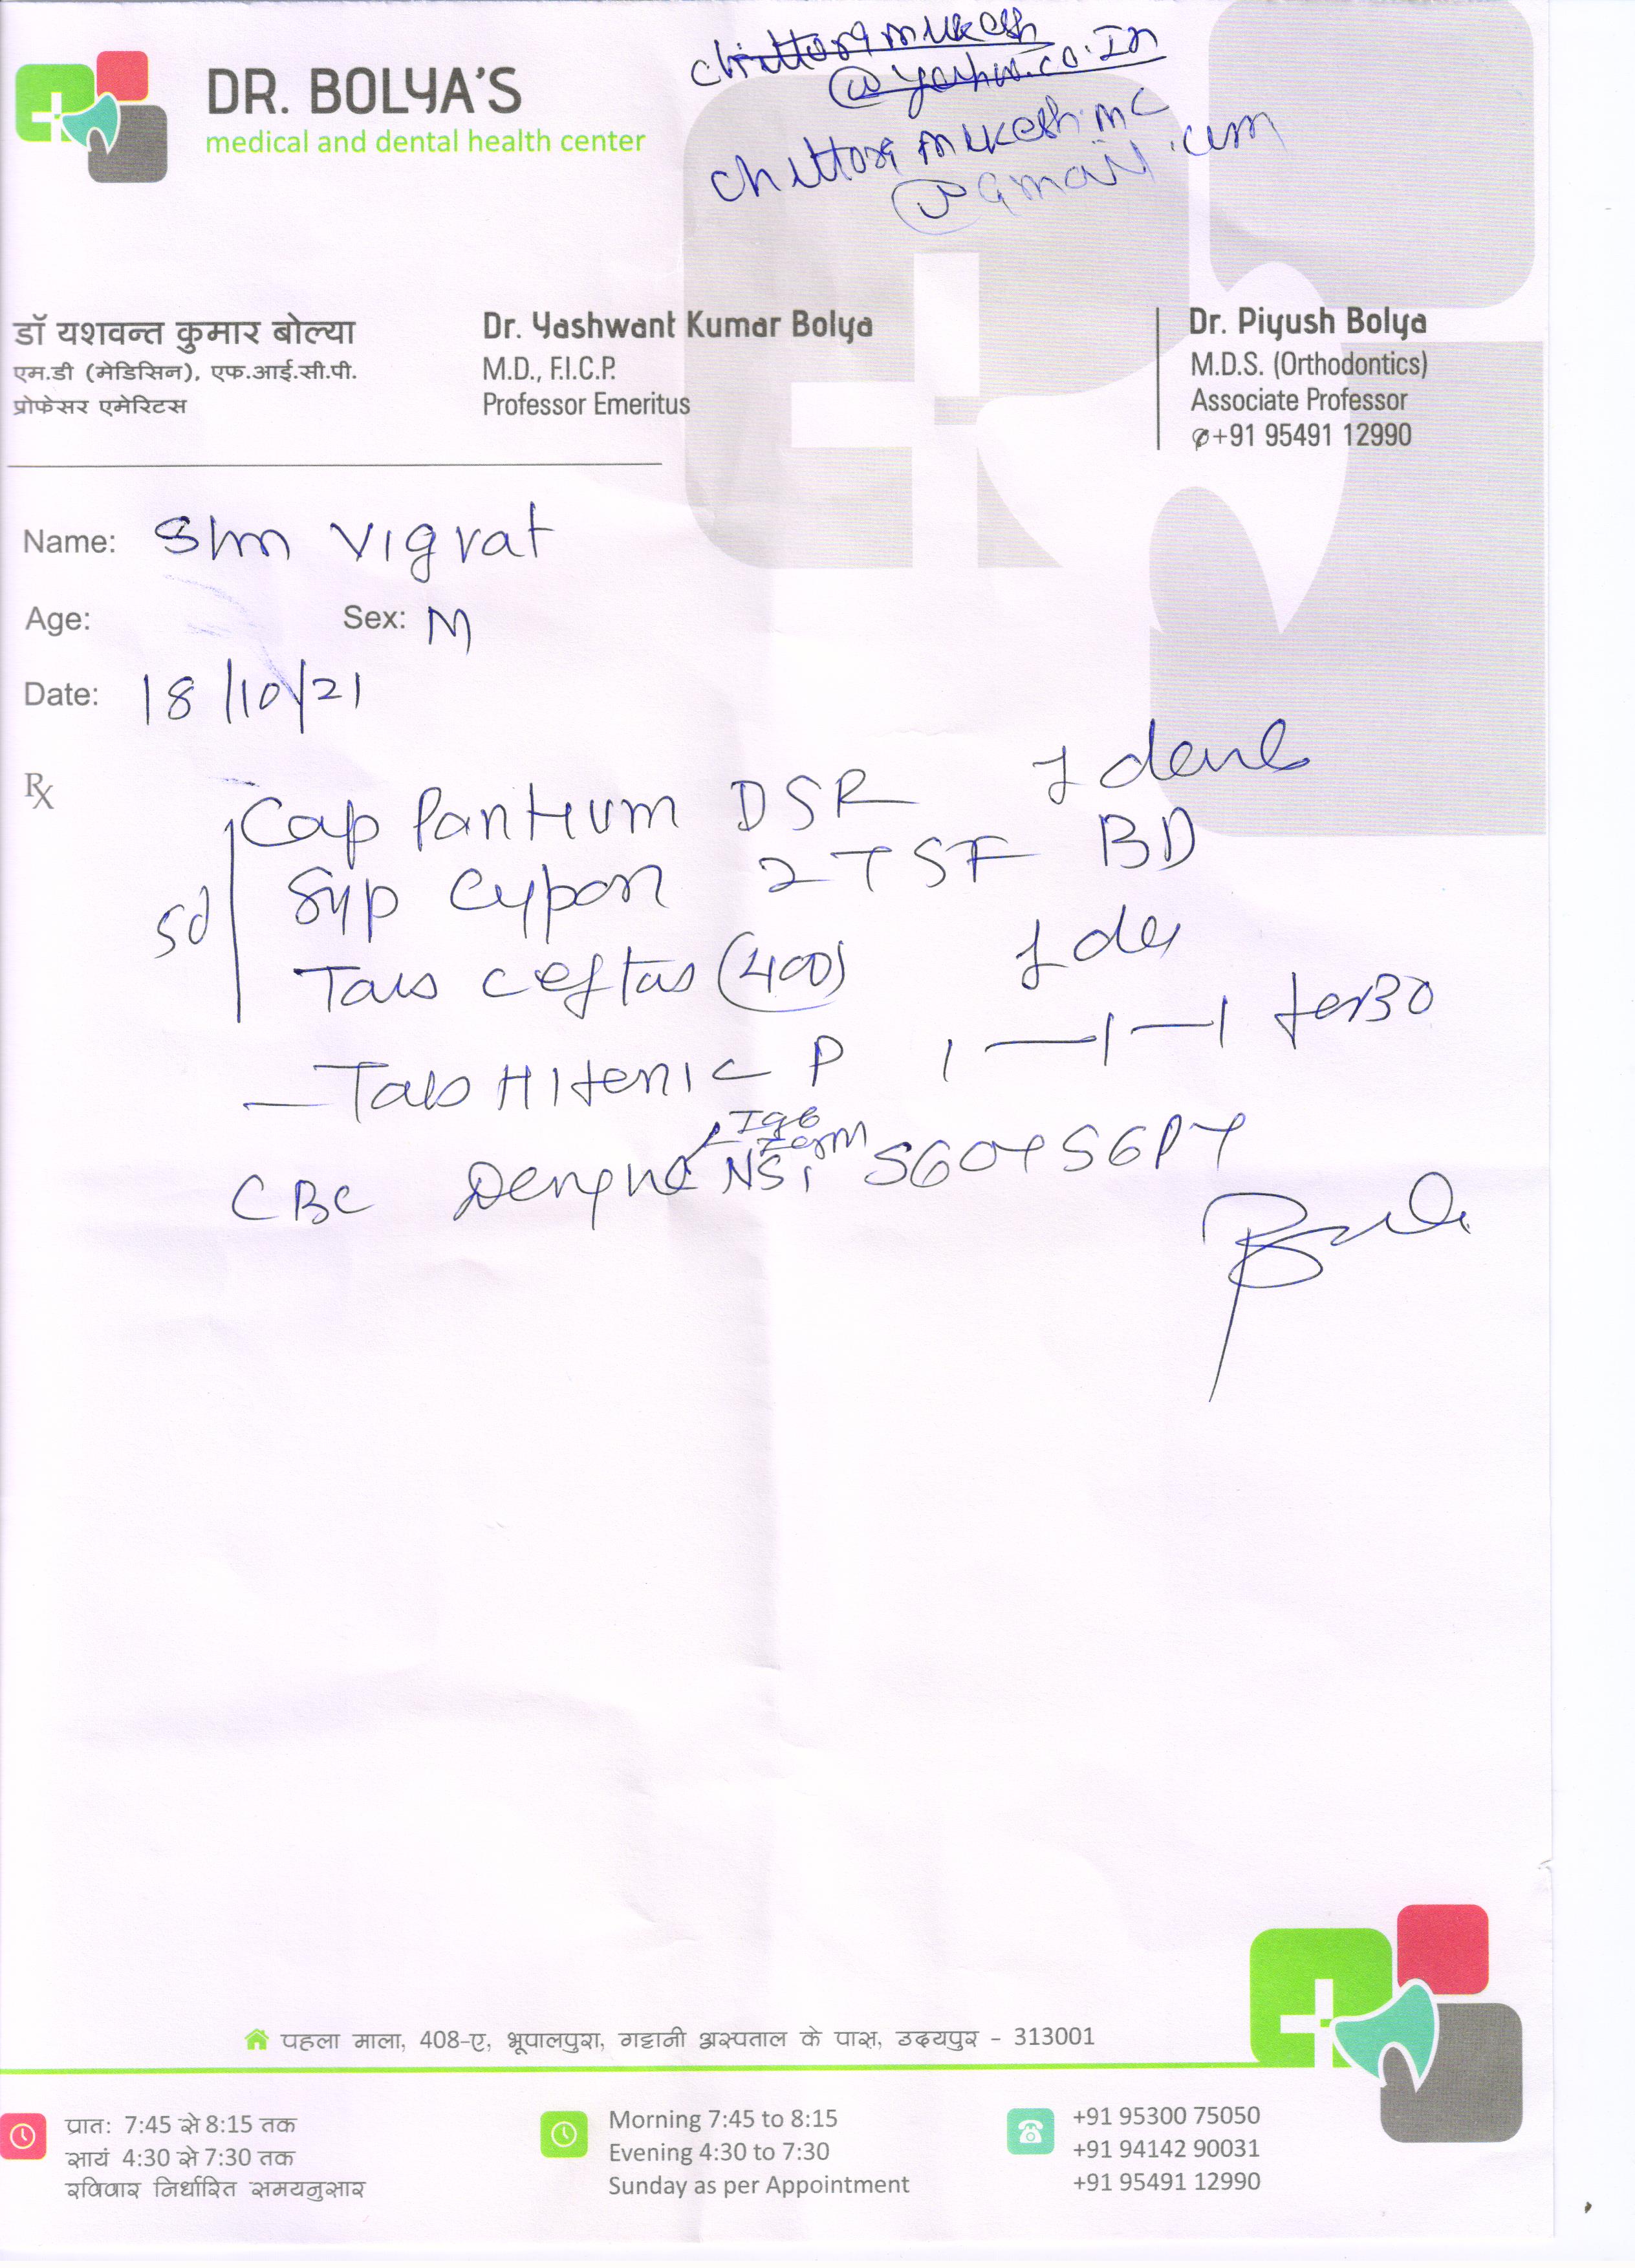 DR. BOLYA'S
medical and dental health center
chittora mukesh
@yahoo.co.In
chittora mukesh.mc
@gmail.com
डॉ यशवन्त कुमार बोल्या
एम.डी (मेडिसिन), एफ.आई.सी.पी.
प्रोफेसर एमेरिटस
Dr. Yashwant Kumar Bolya
M.D., F.I.C.P.
Professor Emeritus
Dr. Piyush Bolya
M.D.S. (Orthodontics)
Associate Professor
✆+91 95491 12990
Name: Vigrat
Age: Sex: M
Date: 18/10/21
Rx
Cap Pantium DSR 1
5d Syp Cypon 2 TSF BD
Tab Ceftas (400) 1
Tab Hitenic P 1—1—1
IgG
IgM
CBC Dengue NS1 SGOT SGPT
पहला माला, 408-ए, भूपालपुरा, गट्टानी अस्पताल के पास, उदयपुर - 313001
प्रातः 7:45 से 8:15 तक
सायं 4:30 से 7:30 तक
रविवार निर्धारित समयनुसार
Morning 7:45 to 8:15
Evening 4:30 to 7:30
Sunday as per Appointment
+91 95300 75050
+91 94142 90031
+91 95491 12990